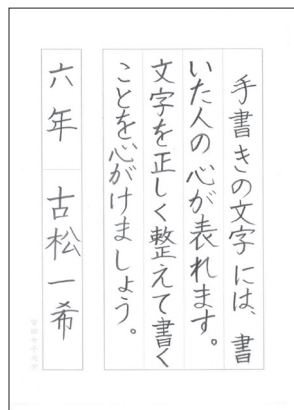 手書きの文字には、書
いた人の心が表れます。
文字を正しく整えて書く
ことを心がけましょう。
六年 古松一希